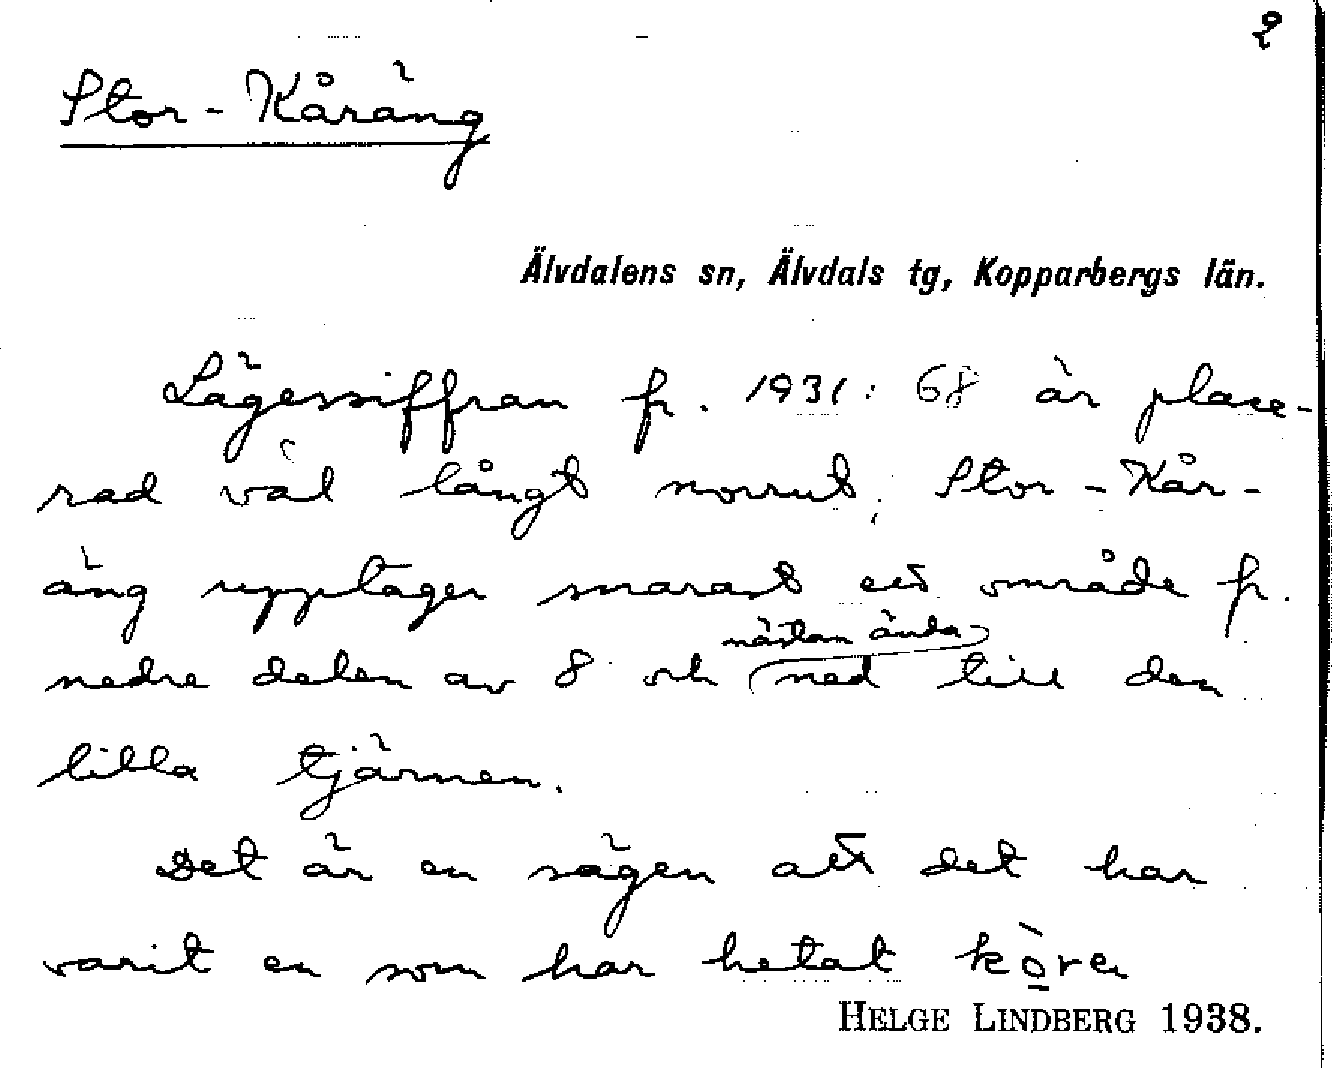 2
Stor-Kåräng
Älvdalens sn, Älvdals tg, Kopparbergs län.
Lägessiffran fr. 1931: 68 är place-
rad väl långt norrut; Stor-Kår-
äng upptager snarast ett område fr.
nedre delen av 8 och nästan ända ned till den
lilla tjärnen.
Det är en sägen att det har
varit en som har hetat kò̱ren
HELGE LINDBERG 1938.